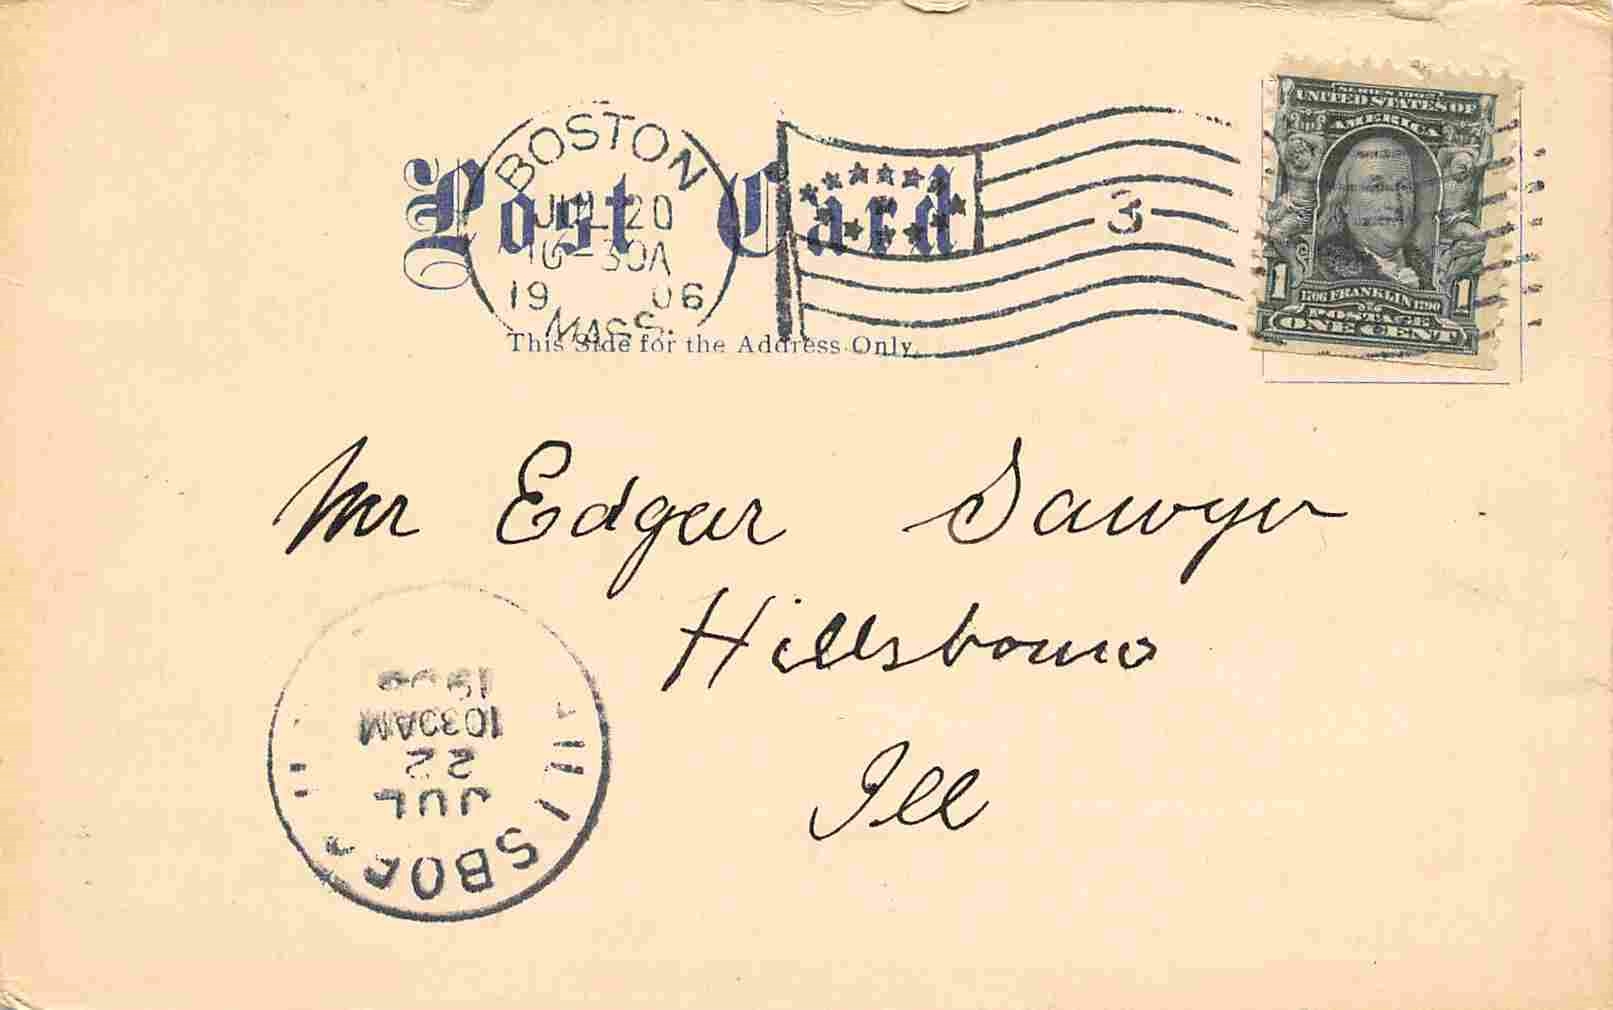 Post Card
BOSTON
JUL 20
1906
MASS.
3
This Side for the Address Only.
SERIES 1902
UNITED STATES OF
AMERICA
1 1706 FRANKLIN 1790 1
POSTAGE
ONE CENT
Mr Edgar Sawyer
Hillsboro
Ill
JUL
22
1030AM
1906